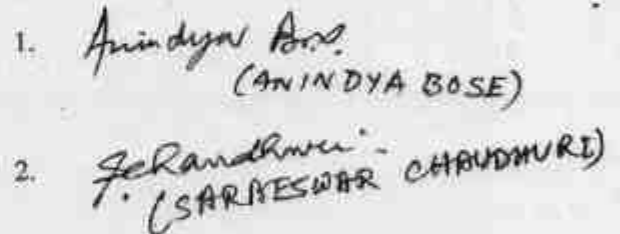 1. Anindya Bose
(ANINDYA BOSE)
2. SChaudhuri
(SARBESWAR CHAUDHURI)